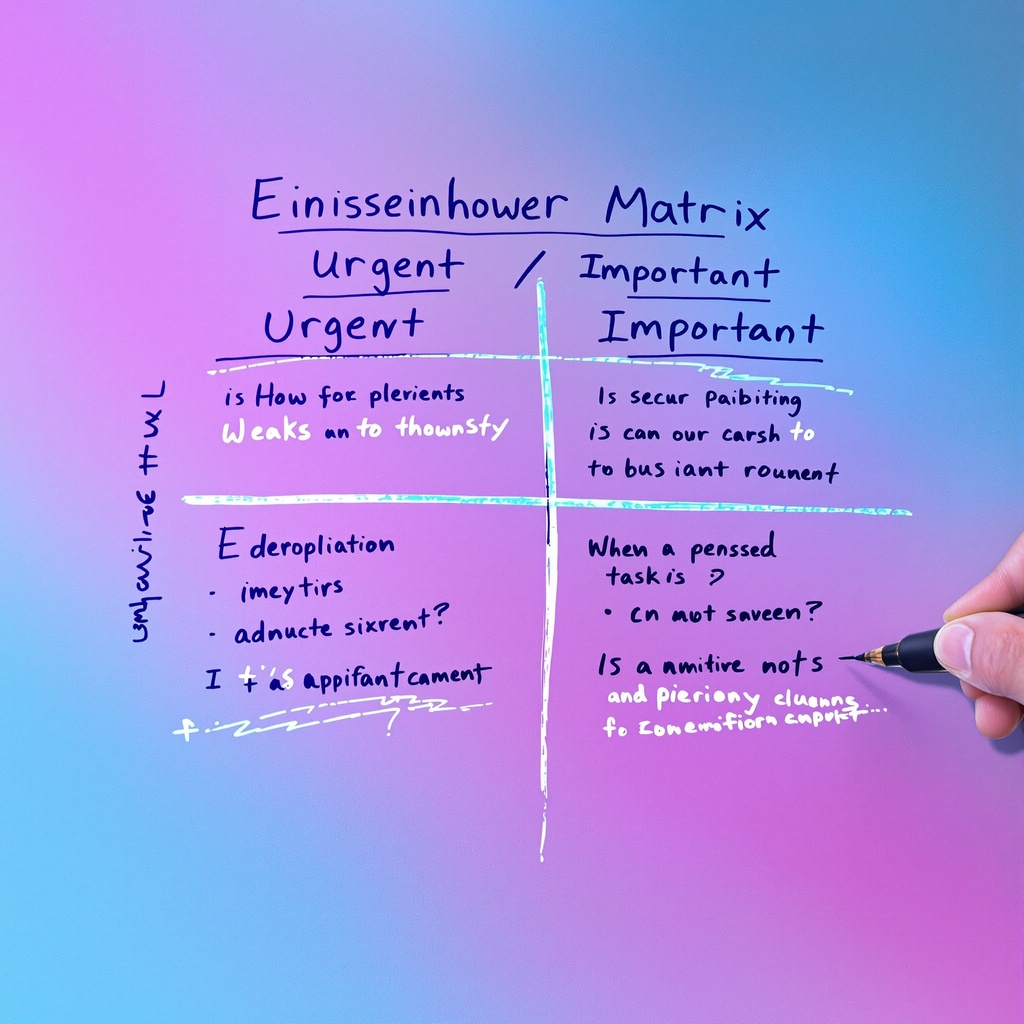 Einisseinhower Matrix
Urgent / Important
Urgent
Important
is How for plerients
Weaks an to thownsty
Is secur paibiting
is can our carsh to
to bus iant rounent
E deropliation
· imeytirs
· adnucte sixrent?
I t'as appifantcament
When a penssed
task is ?
· cn not saveen?
Is a amitive nots
and pieriony cluanns
to conemifiorn